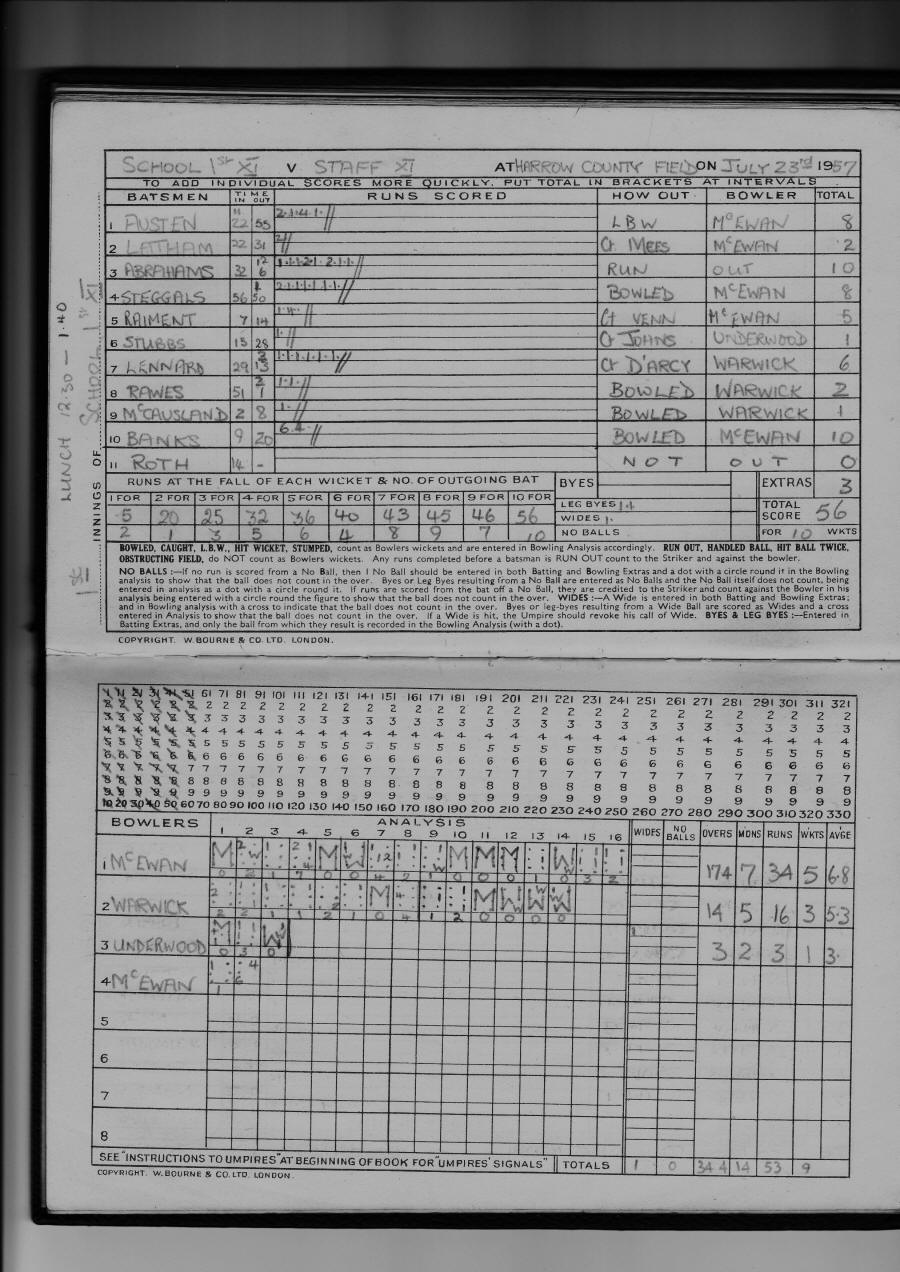 SCHOOL 1ST XI V STAFF XI AT HARROW COUNTY FIELD ON JULY 23rd 1957
TO ADD INDIVIDUAL SCORES MORE QUICKLY, PUT TOTAL IN BRACKETS AT INTERVALS
BATSMEN TIME IN OUT RUNS SCORED HOW OUT BOWLER TOTAL
1 AUSTEN 11 22 55 2.1.4.1. LBW McEWAN 8
2 LATHAM 22 31 2 Ct MEES McEWAN 2
3 ABRAHAMS 32 12 6 1.1.1.2.1.2.1.1. RUN OUT 10
4 STEGGALS 56 1 50 2.1.1.1.1.1.1. BOWLED McEWAN 8
5 RAIMENT 7 14 1.4. Ct VENN McEWAN 5
6 STUBBS 15 28 1. Ct JOHNS UNDERWOOD 1
7 LENNARD 29 2 13 1.1.1.1.1.1. Ct D'ARCY WARWICK 6
8 RAWES 51 2 1 1.1. BOWLED WARWICK 2
9 McCAUSLAND 2 8 1. BOWLED WARWICK 1
10 BANKS 9 20 6.4. BOWLED McEWAN 10
11 ROTH 14 - NOT OUT 0
LUNCH 12.30 - 1.40
1st INNINGS OF SCHOOL 1st XI
RUNS AT THE FALL OF EACH WICKET & NO. OF OUTGOING BAT
1 FOR 2 FOR 3 FOR 4 FOR 5 FOR 6 FOR 7 FOR 8 FOR 9 FOR 10 FOR
5 20 25 32 36 40 43 45 46 56
2 1 3 5 6 4 8 9 7 10
BYES EXTRAS 3
LEG BYES 1.1 TOTAL SCORE 56
WIDES 1.
NO BALLS FOR 10 WKTS
BOWLED, CAUGHT, L.B.W., HIT WICKET, STUMPED, count as Bowlers wickets and are entered in Bowling Analysis accordingly. RUN OUT, HANDLED BALL, HIT BALL TWICE,
OBSTRUCTING FIELD, do NOT count as Bowlers wickets. Any runs completed before a batsman is RUN OUT count to the Striker and against the bowler.
NO BALLS :—If no run is scored from a No Ball, then 1 No Ball should be entered in both Batting and Bowling Extras and a dot with a circle round it in the Bowling
analysis to show that the ball does not count in the over. Byes or Leg Byes resulting from a No Ball are entered as No Balls and the No Ball itself does not count, being
entered in analysis as a dot with a circle round it. If runs are scored from the bat off a No Ball, they are credited to the Striker and count against the Bowler in his
analysis being entered with a circle round the figure to show that the ball does not count in the over. WIDES :—A Wide is entered in both Batting and Bowling Extras;
and in Bowling analysis with a cross to indicate that the ball does not count in the over. Byes or leg-byes resulting from a Wide Ball are scored as Wides and a cross
entered in Analysis to show that the ball does not count in the over. If a Wide is hit, the Umpire should revoke his call of Wide. BYES & LEG BYES :—Entered in
Batting Extras, and only the ball from which they result is recorded in the Bowling Analysis (with a dot).
COPYRIGHT. W. BOURNE & CO. LTD. LONDON.
1 11 21 31 41 51 61 71 81 91 101 111 121 131 141 151 161 171 181 191 201 211 221 231 241 251 261 271 281 291 301 311 321
10 20 30 40 50 60 70 80 90 100 110 120 130 140 150 160 170 180 190 200 210 220 230 240 250 260 270 280 290 300 310 320 330
BOWLERS ANALYSIS WIDES NO BALLS OVERS MDNS RUNS WKTS AVGE
1 2 3 4 5 6 7 8 9 10 11 12 13 14 15 16
1 McEWAN 17.4 7 34 5 6.8
2 WARWICK 14 5 16 3 5.3
3 UNDERWOOD 1 3 2 3 1 3.
4 McEWAN
5
6
7
8
SEE "INSTRUCTIONS TO UMPIRES" AT BEGINNING OF BOOK FOR "UMPIRES' SIGNALS" TOTALS 1 0 34.4 14 53 9
COPYRIGHT. W. BOURNE & CO. LTD. LONDON.